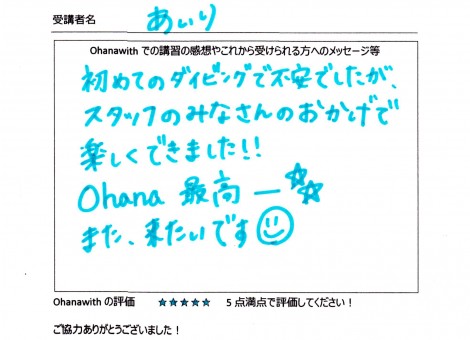 受講者名 あいり
Ohanawith での講習の感想やこれから受けられる方へのメッセージ等
初めてのダイビングで不安でしたが、
スタッフのみなさんのおかげで
楽しくできました!!
Ohana 最高ー☆☆
また、来たいです☺
Ohanawith の評価 ★★★★★ 5 点満点で評価してください！
ご協力ありがとうございました！